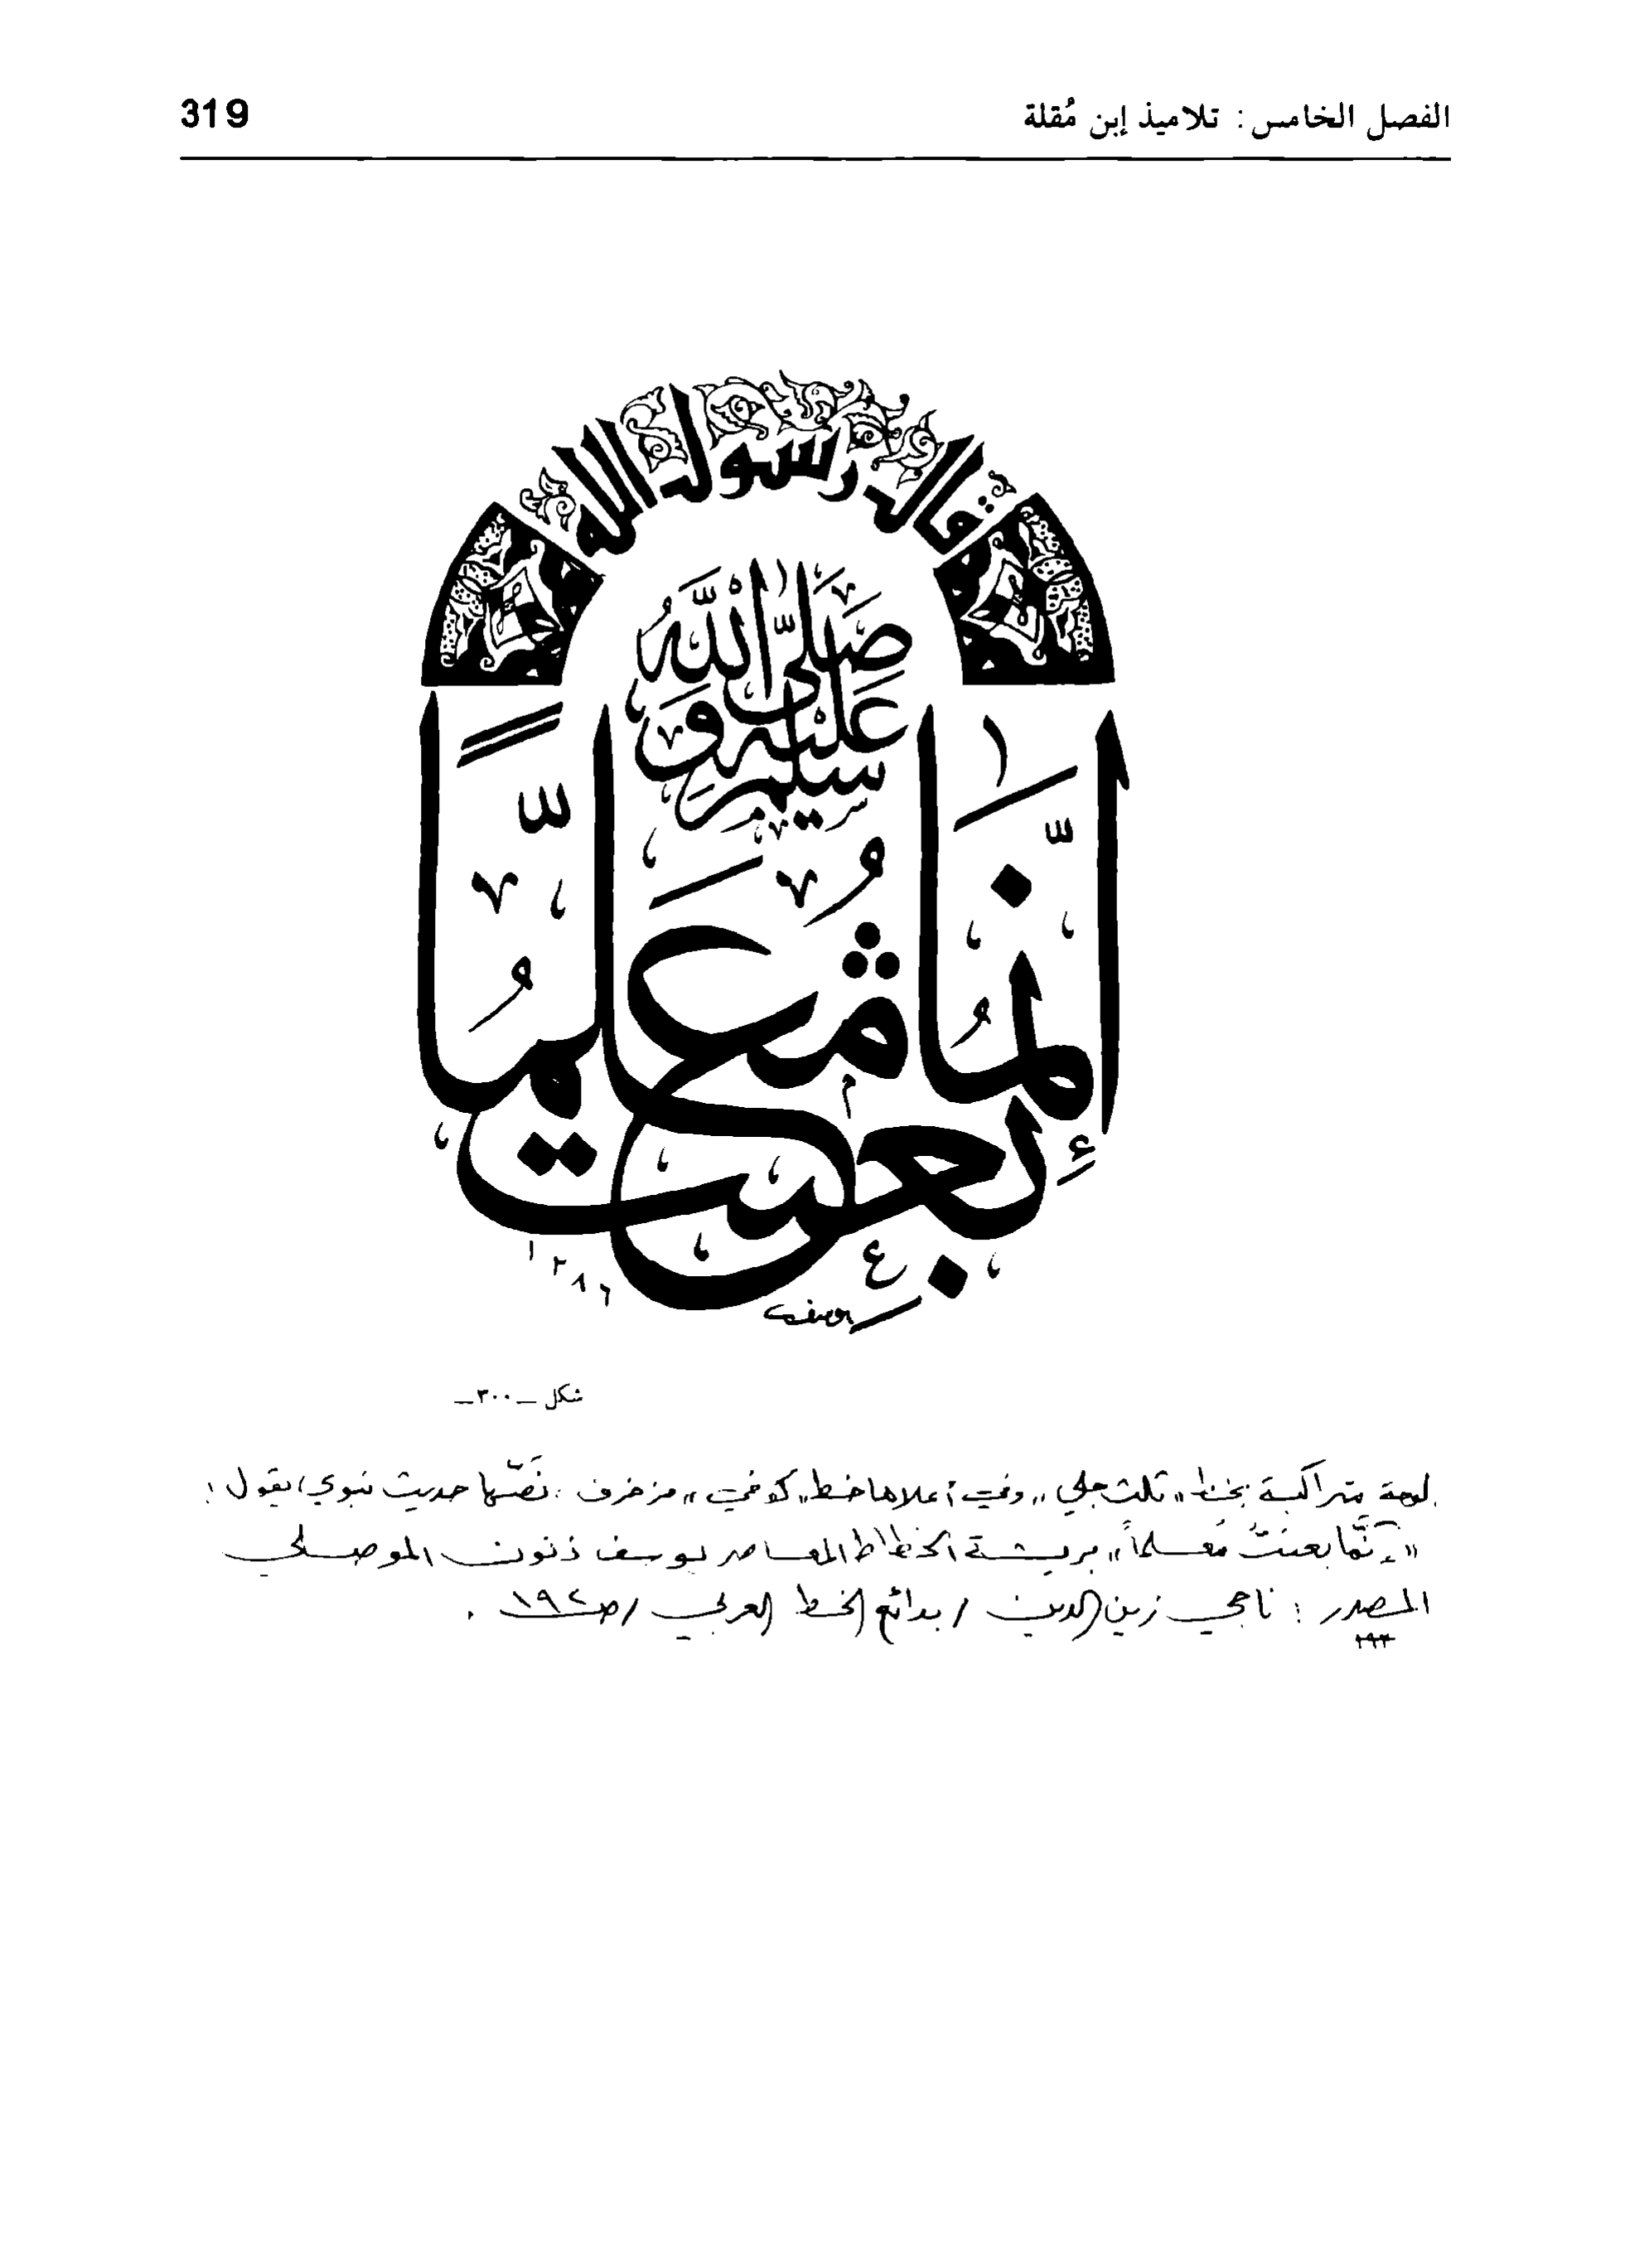 الفصل الخامس: تلاميذ إبن مُقلة
319
قال رسول الله
صَلَّى اللهُ عَلَيْهِ وَسَلَّم
إِنَّمَا بُعِثْتُ مُعَلِّمًا
١٣٨٦
يوسف
شكل _ ٣٠٠ _
لوحة متراكبة بخط «ثلث جلي» وفي أعلاها خط «كوفي» مزخرف. نَصّها حديث نبوي يقول:
«إنَّما بعثتُ مُعلماً» بريشة الخطاط المعاصر يوسف ذنون الموصلي
المصدر: ناجي زين الدين / بدائع الخط العربي / ص ١٩٢.
٢٩٣